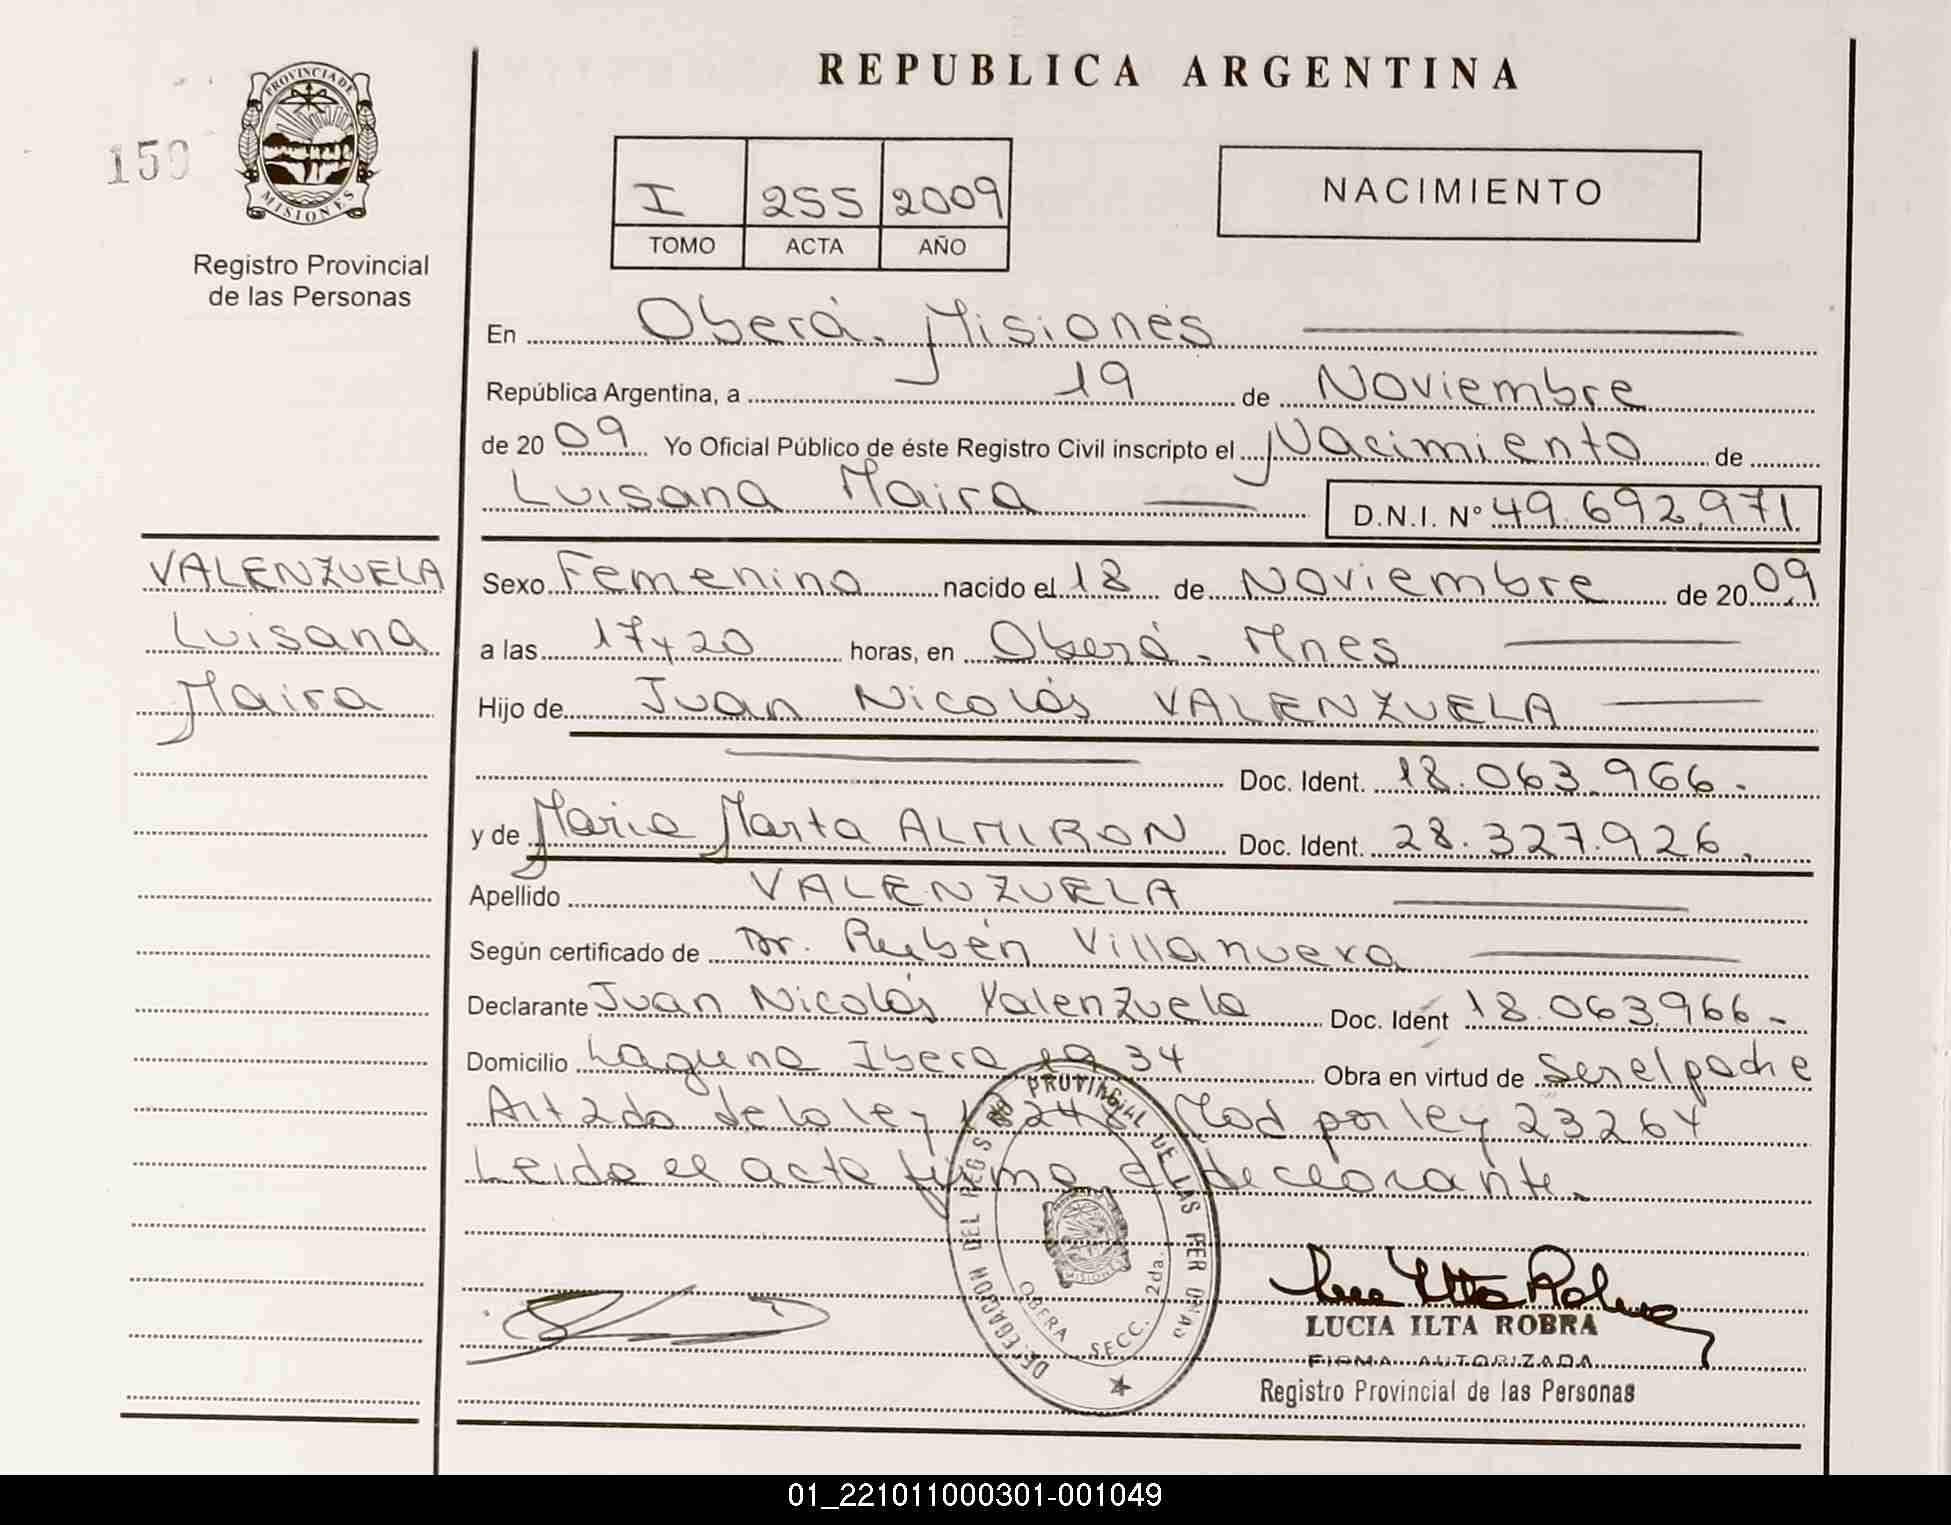 REPUBLICA ARGENTINA
PROVINCIA DE
MISIONES
159
Registro Provincial
de las Personas
I 255 2009
TOMO ACTA AÑO
NACIMIENTO
En Oberá. Misiones
República Argentina, a 19 de Noviembre
de 2009 Yo Oficial Público de éste Registro Civil inscripto el Nacimiento de
Luisana Maira D.N.I. N° 49.692.971
VALENZUELA
Luisana
Maira
Sexo Femenino nacido el 18 de Noviembre de 2009
a las 17y20 horas, en Oberá - Mnes
Hijo de Juan Nicolás VALENZUELA
Doc. Ident. 18.063.966.
y de Maria Marta ALMIRON Doc. Ident. 28.327.926.
Apellido VALENZUELA
Según certificado de Dr. Rubén Villanueva
Declarante Juan Nicolás Valenzuela Doc. Ident 18.063.966-
Domicilio Laguna Ibera 34 Obra en virtud de Ser el padre
Art 2do de la ley 18248 Mod por ley 23264
Leida el acta firma el declarante.
DELEGACION DEL REGISTRO PROVINCIAL DE LAS PERSONAS
OBERA SECC. 2da.
LUCIA ILTA ROBRA
FIRMA AUTORIZADA
Registro Provincial de las Personas
01_221011000301-001049